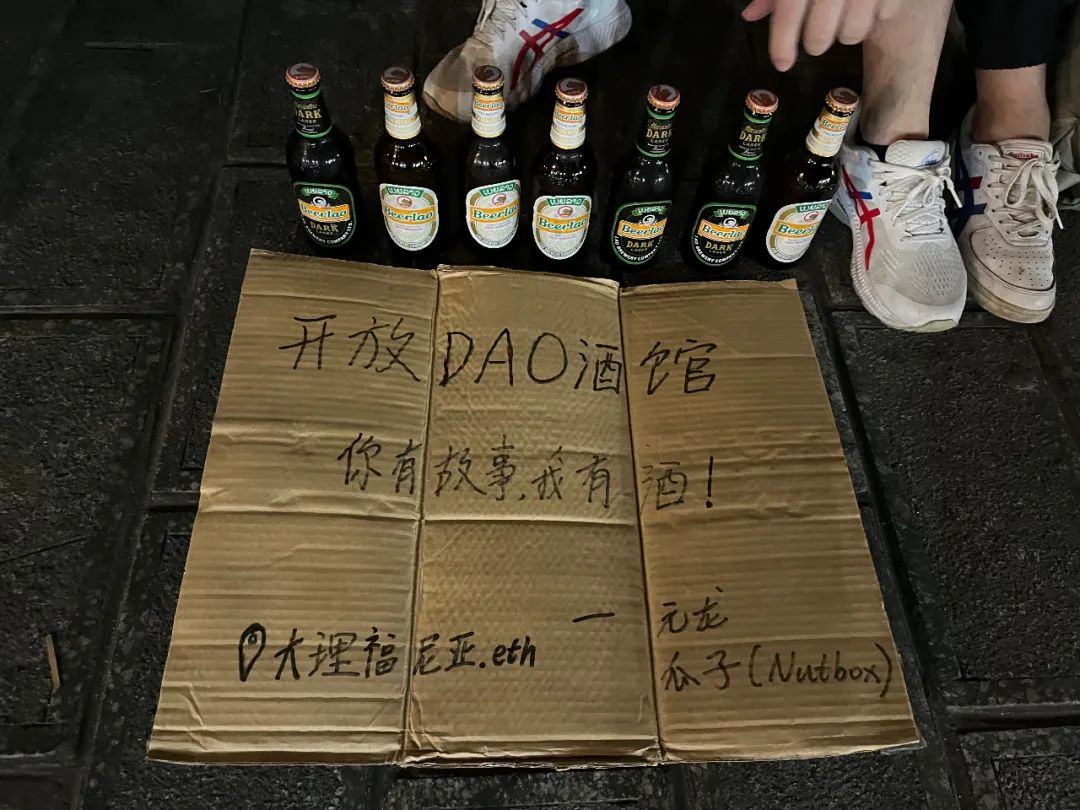 DARK
LAGER
Beerlao
DARK
LAGER
Beerlao
Beerlao
Beerlao
Beerlao
Beerlao
Beerlao
DARK
LAGER
Beerlao
DARK
DARK
LAGER
Beerlao
DARK
Beerlao
Beerlao
开放DAO酒馆
你有故事,我有酒!
一 元龙
大理福尼亚.eth
瓜子(Nutbox)